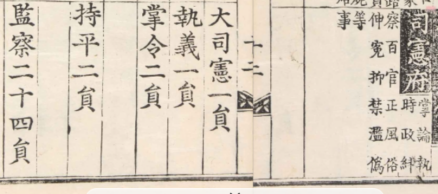 司憲府
掌論執
時政糾
察百官正風俗
伸冤抑禁濫僞
等
事
十二
大司憲一員
執義一員
掌令二員
持平二員
監察二十四員